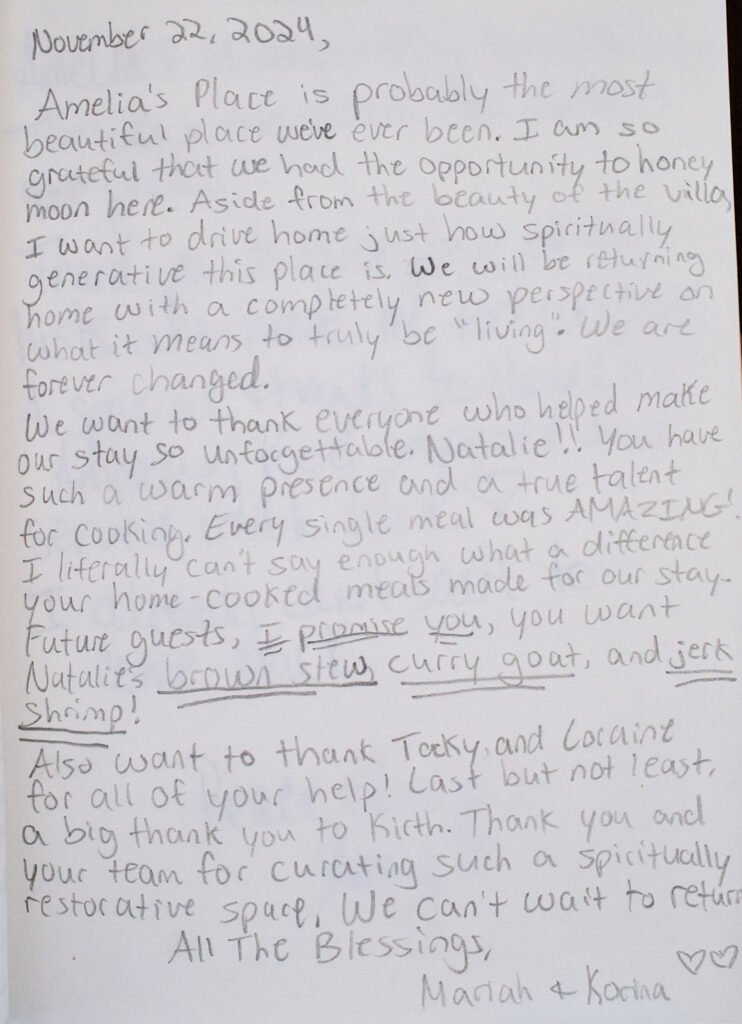 November 22, 2024,
Amelia's Place is probably the most
beautiful place we've ever been. I am so
grateful that we had the opportunity to honey
moon here. Aside from the beauty of the villa,
I want to drive home just how spiritually
generative this place is. We will be returning
home with a completely new perspective on
what it means to truly be "living". We are
forever changed.
We want to thank everyone who helped make
our stay so unforgettable. Natalie!! You have
such a warm presence and a true talent
for cooking. Every single meal was AMAZING!
I literally can't say enough what a difference
your home-cooked meals made for our stay.
Future guests, I promise you, you want
Natalie's brown stew, curry goat, and jerk
shrimp!
Also want to thank Tacky, and Loraine
for all of your help! Last but not least,
a big thank you to Kirth. Thank you and
your team for curating such a spiritually
restorative space. We can't wait to return
All The Blessings,
Mariah & Korina